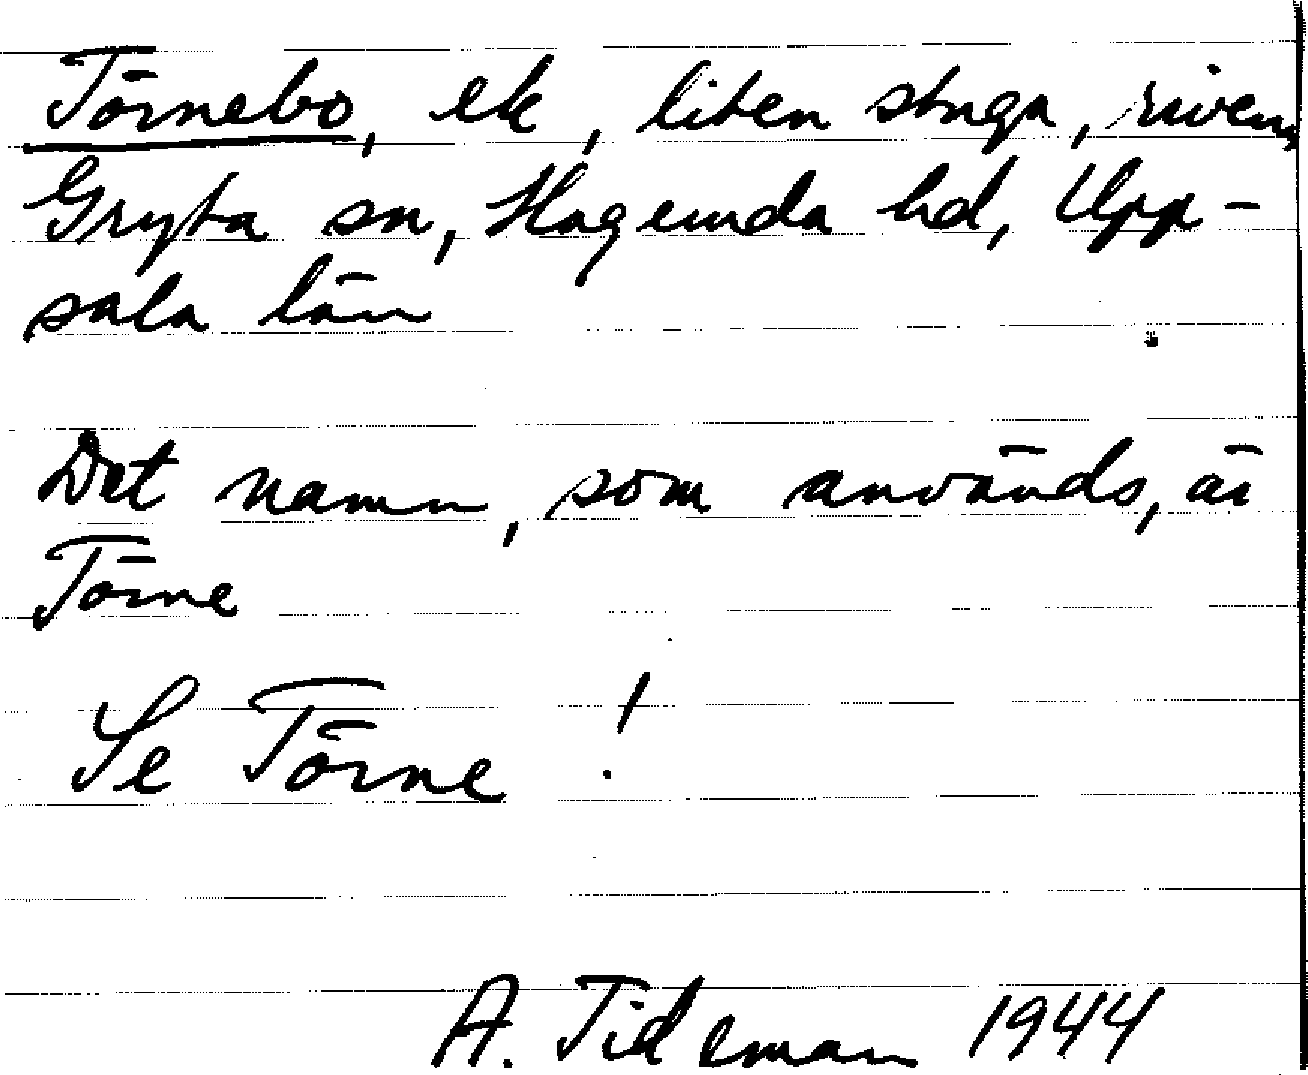 Törnebo, ek, liten stuga, riven,
Gryta sn, Hagunda hd, Upp-
sala län
Det namn, som används, är
Törne
Se Törne!
A. Tideman 1944